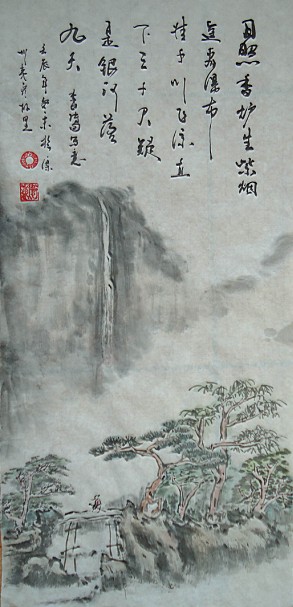 日照香炉生紫烟
遥看瀑布
挂前川飞流直
下三千尺疑
是银河落
九天
壬辰年